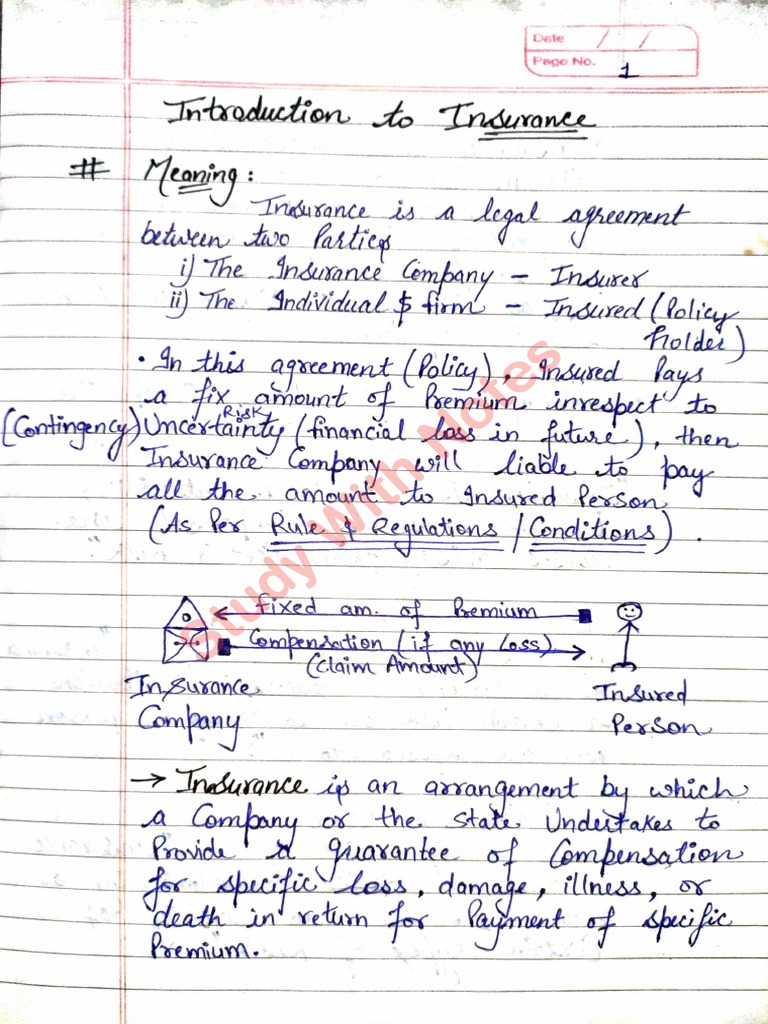 Date / /
Page No. 1
Introduction to Insurance
# Meaning :
Insurance is a legal agreement
between two Parties
i) The Insurance Company - Insurer
ii) The Individual $ firm - Insured (Policy
holder)
• In this agreement (Policy), Insured Pays
a fix amount of Premium inrespect to
Risk
(Contingency) Uncertainty (financial loss in future), then
Insurance Company will liable to pay
all the amount to Insured Person
(As Per Rule & Regulations / Conditions) .
fixed am. of Premium
Compensation (if any Loss)
(Claim Amount)
Insurance
Company
Insured
Person
→ Insurance is an arrangement by which
a Company or the state Undertakes to
Provide a guarantee of Compensation
for specific loss, damage, illness, or
death in return for Payment of specific
Premium.
Study With Notes